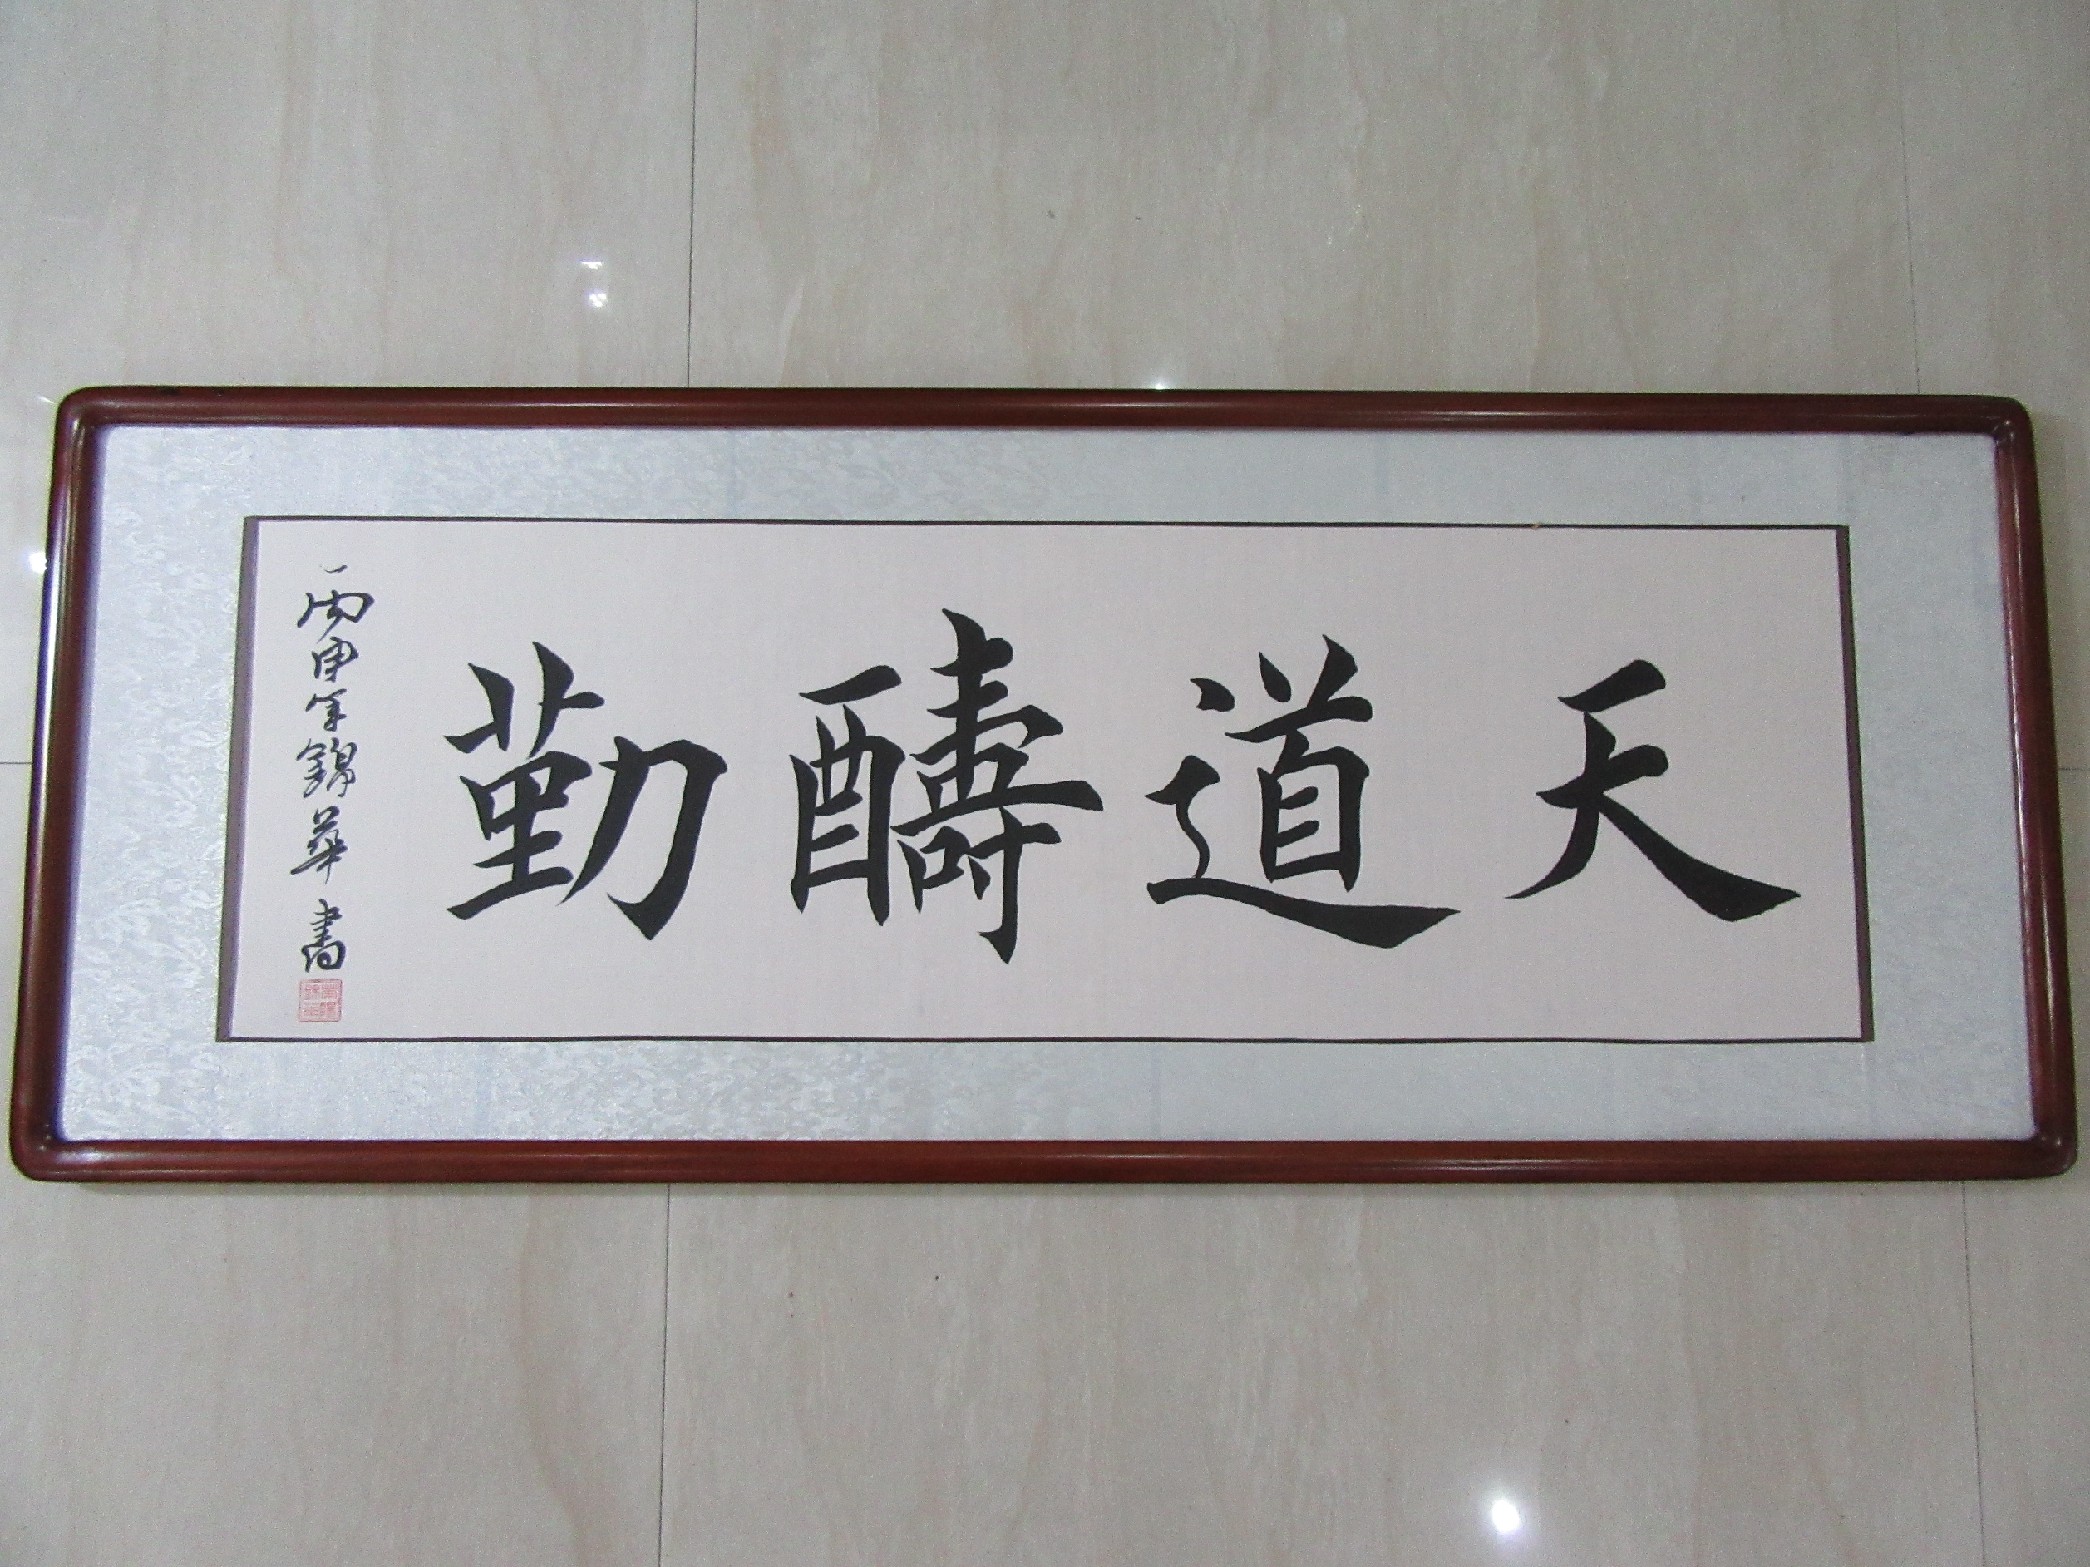 天道醻勤
丙申年錦華書